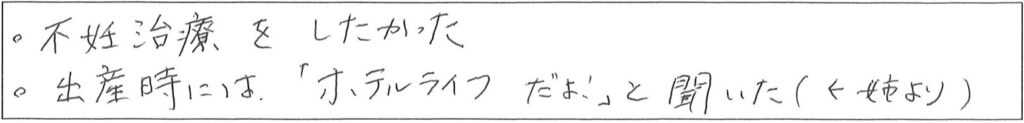 。不妊治療をしたかった
。出産時には、「ホテルライフだよ!」と聞いた(←姉より)